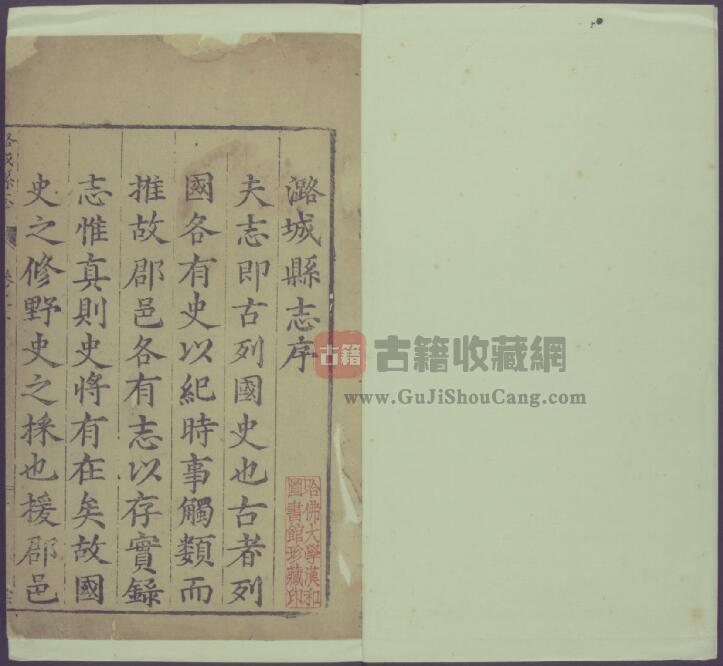 潞城縣志序
夫志即古列國史也古者列
國各有史以紀時事觸類而
推故郡邑各有志以存實錄
志惟真則史將有在矣故國
史之修野史之採也援郡邑
哈佛大學漢和
圖書館珍藏印
古籍
古籍收藏網
www.GuJiShouCang.com